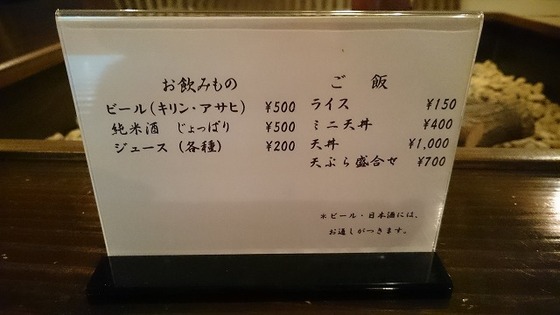 お飲みもの
ビール(キリン・アサヒ) ¥500
純米酒 じょっぱり ¥500
ジュース(各種) ¥200
ご飯
ライス ¥150
ミニ天丼 ¥400
天丼 ¥1,000
天ぷら盛合せ ¥700
*ビール・日本酒には、
お通しがつきます。